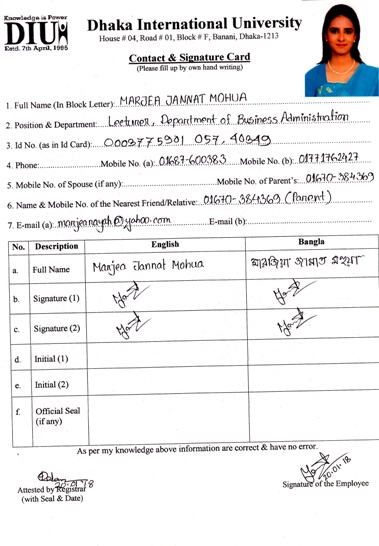 Knowledge is Power
DIU
Estd. 7th April, 1995
Dhaka International University
House # 04, Road # 01, Block # F, Banani, Dhaka-1213
Contact & Signature Card
(Please fill up by own hand writing)
1. Full Name (In Block Letter): MARJEA JANNAT MOHUA
2. Position & Department: Lecturer, Department of Business Administration
3. Id No. (as in Id Card): 0003775901 057, 40349
4. Phone: Mobile No. (a): 01687-600383 Mobile No. (b): 01771762427
5. Mobile No. of Spouse (if any): Mobile No. of Parent's: 01670-384369
6. Name & Mobile No. of the Nearest Friend/Relative: 01670-384369 (Parent)
7. E-mail (a): @yahoo.com E-mail (b):
No. Description English Bangla
a. Full Name Marjea Jannat Mohua মারজিয়া জান্নাত মহুয়া
b. Signature (1)
c. Signature (2)
d. Initial (1)
e. Initial (2)
f. Official Seal (if any)
As per my knowledge above information are correct & have no error.
20-01-18
20-01-18
Attested by Registrar
(with Seal & Date)
Signature of the Employee